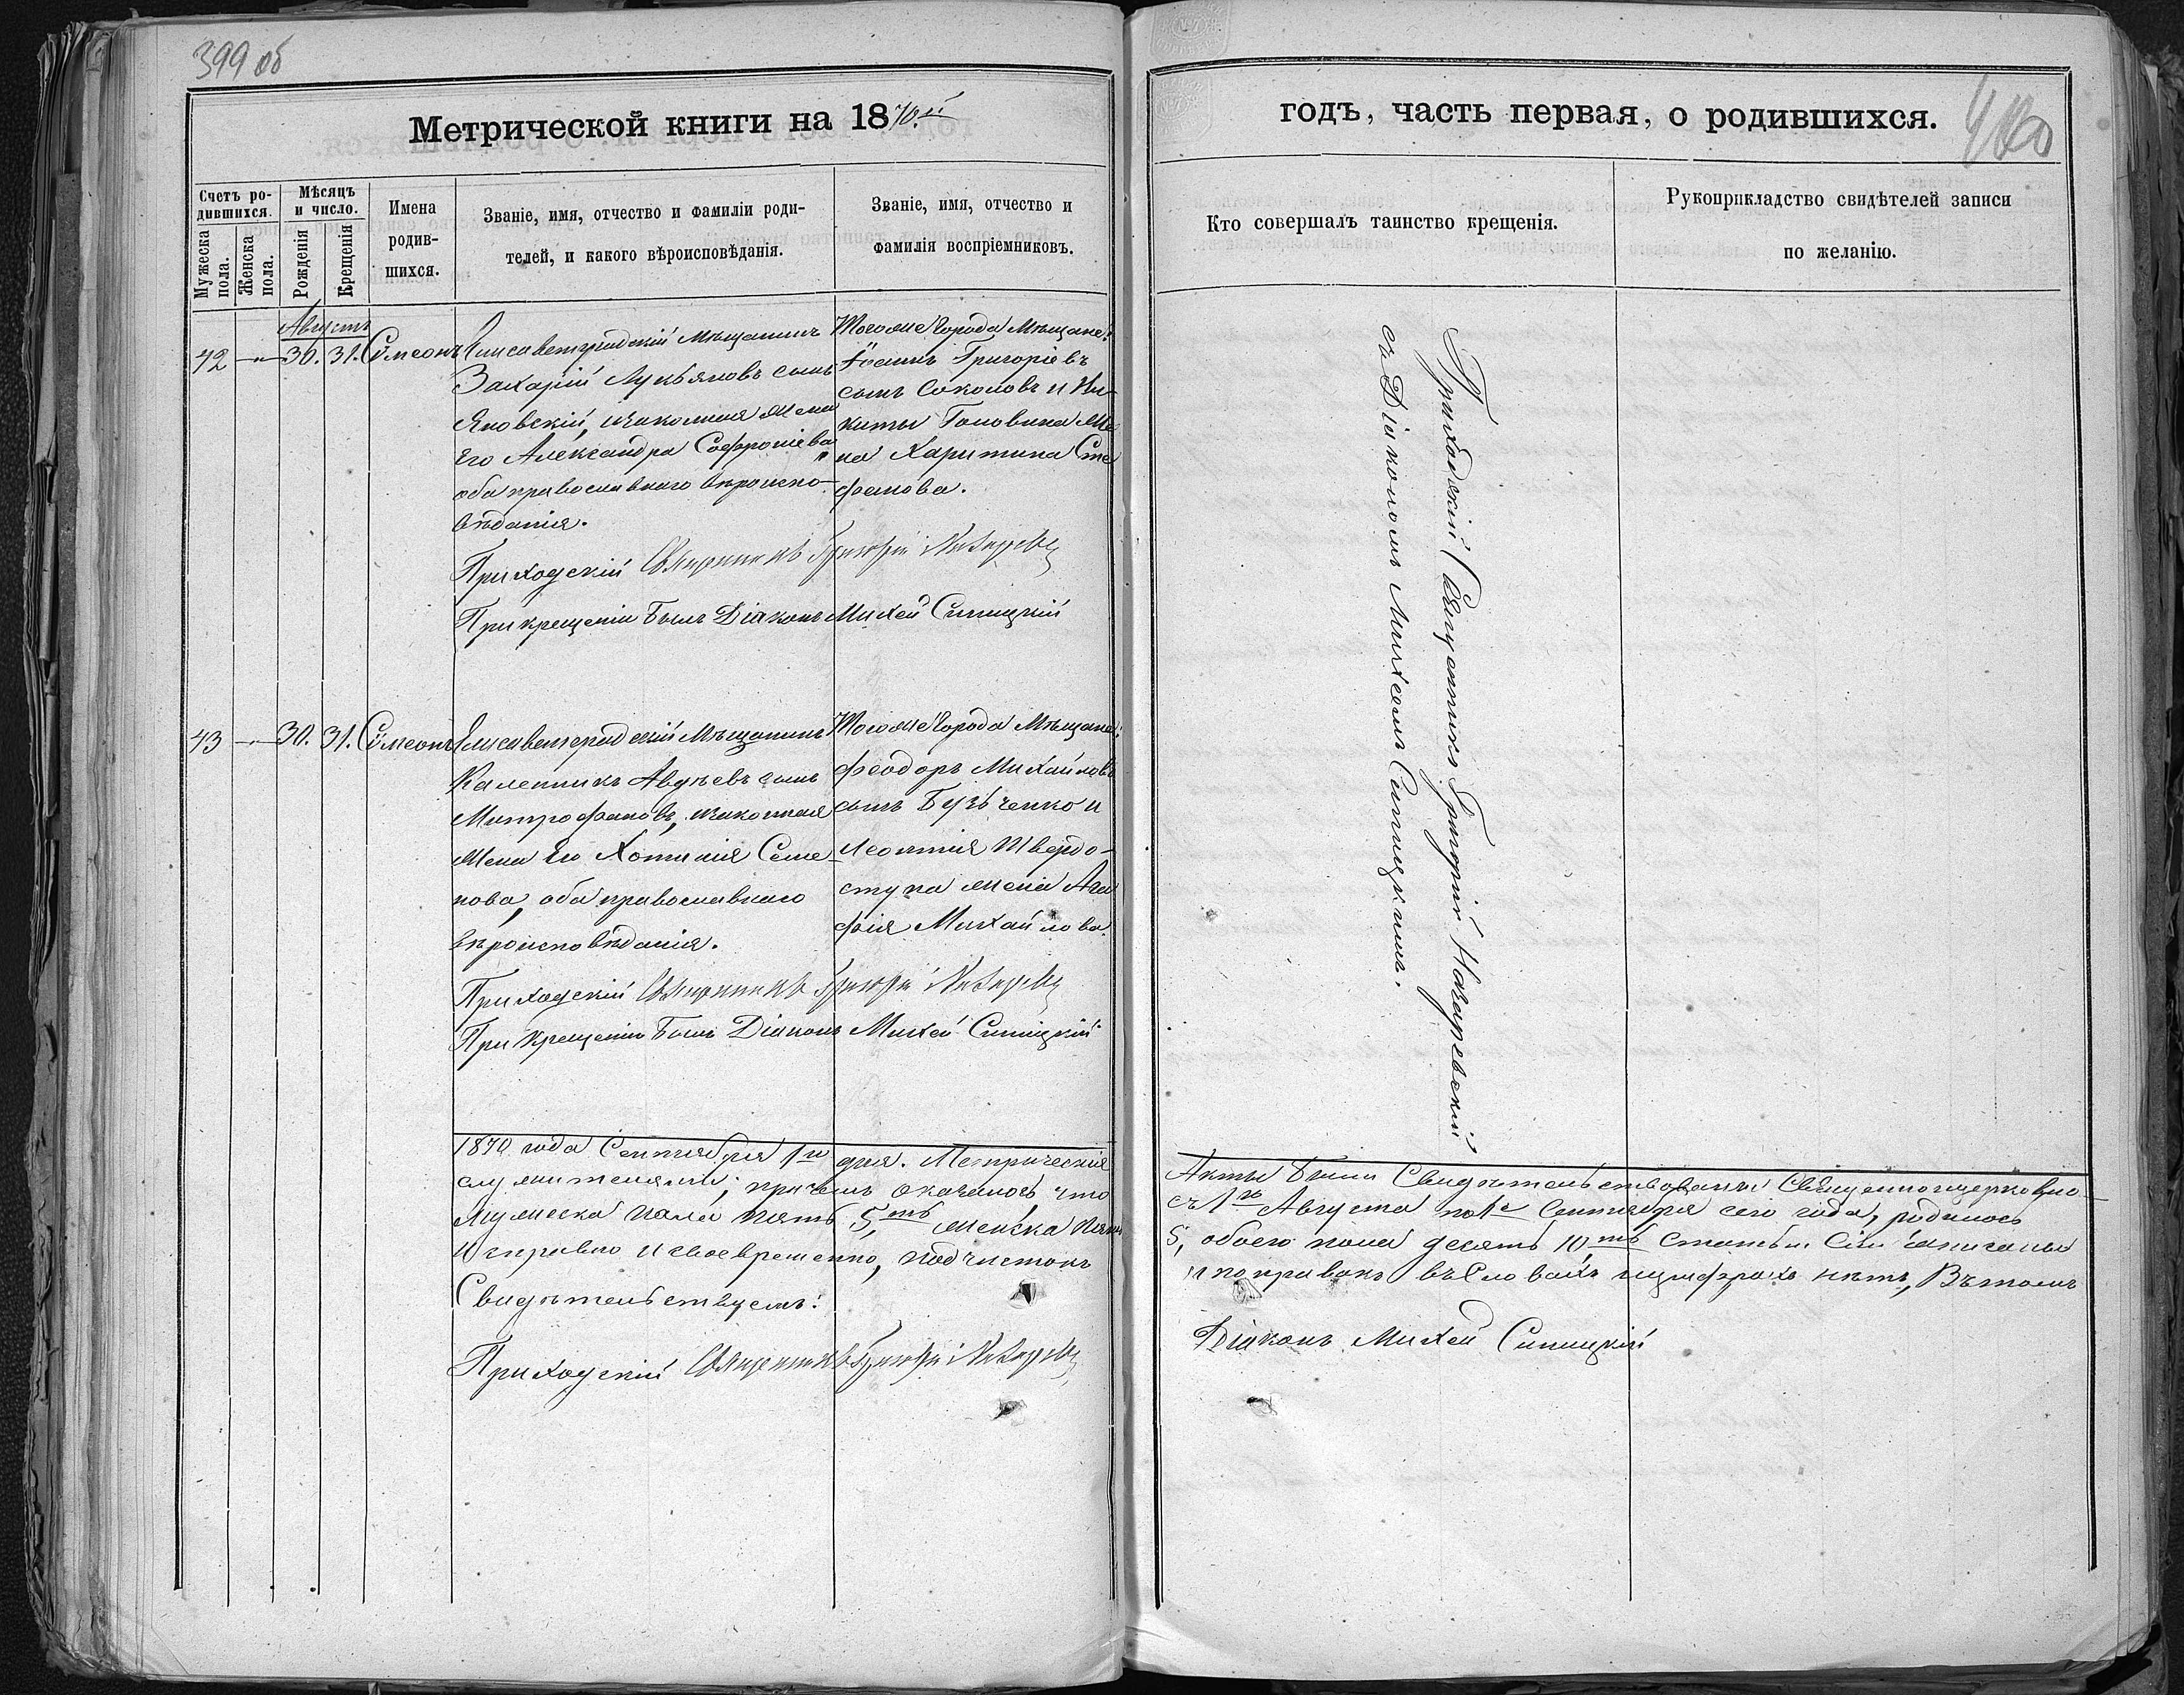 399 об
Метрической книги на 1870.й
Счетъ ро-
дившихся.
Мужеска
пола.
Женска
пола.
Мѣсяцъ
и число.
Рожденія
Крещенія
Имена
родив-
шихся.
Званіе, имя, отчество и фамиліи роди-
телей, и какого вѣроисповѣданія.
Званіе, имя, отчество и
фамилія воспріемниковъ.
Августъ
42 —„— 30. 31. Сѵмеонъ
Елисаветградскій Мѣщанинъ
Захарій Лукьяновъ сынъ
Яновскій, законная жена
Его Александра Софроніева
оба православнаго вѣроиспо-
вѣданія.
Тогоже Города Мѣщане:
Іоаннъ Григоріевъ
сынъ Соколовъ и Ни-
киты Головина же
на Харитина Сте
фанова.
Приходскій Священникъ Григорій
При крещеніи былъ Діаконъ Михей Синицкій
43 —„— 30. 31. Сѵмеонъ
Елисаветградскій Мѣщанинъ
Каленникъ Авдѣевъ сынъ
Митрофановъ, законная
жена Его Хотинія Семе-
нова, оба православнаго
вѣроисповѣданія.
Тогоже Города Мѣщане:
Феодоръ Михайловъ
сынъ Бузченко и
Леонтія Твердо-
ступа жена Ага
фія Михайлова.
Приходскій Священникъ Григорій
При Крещеніи былъ Діаконъ Михей Синицкій
1870 года Сентября 1го дня. Метрическія
служителями; причемъ оказалось что
Мужеска пола пять 5,ть женска пять
Исправно и своевременно, подчистокъ
Свидѣтельствуемъ:
Приходскій Священникъ Григорій
годъ, часть первая, о родившихся.
400
Кто совершалъ таинство крещенія.
Рукоприкладство свидѣтелей записи
по желанію.
Приходскій Священникъ Григорій Назаревскій
съ Діакономъ Михеемъ Синицкимъ.
Акты были Свидѣтельствованы Священноцерковно-
съ 1го Августа по 1е Сентября сего года, родилось
5, обоего пола десять 10,ть Статьи Сіи записаны
и поправокъ въ Словахъ и цифрахъ нѣтъ, Въ томъ
Діаконъ Михей Синицкій